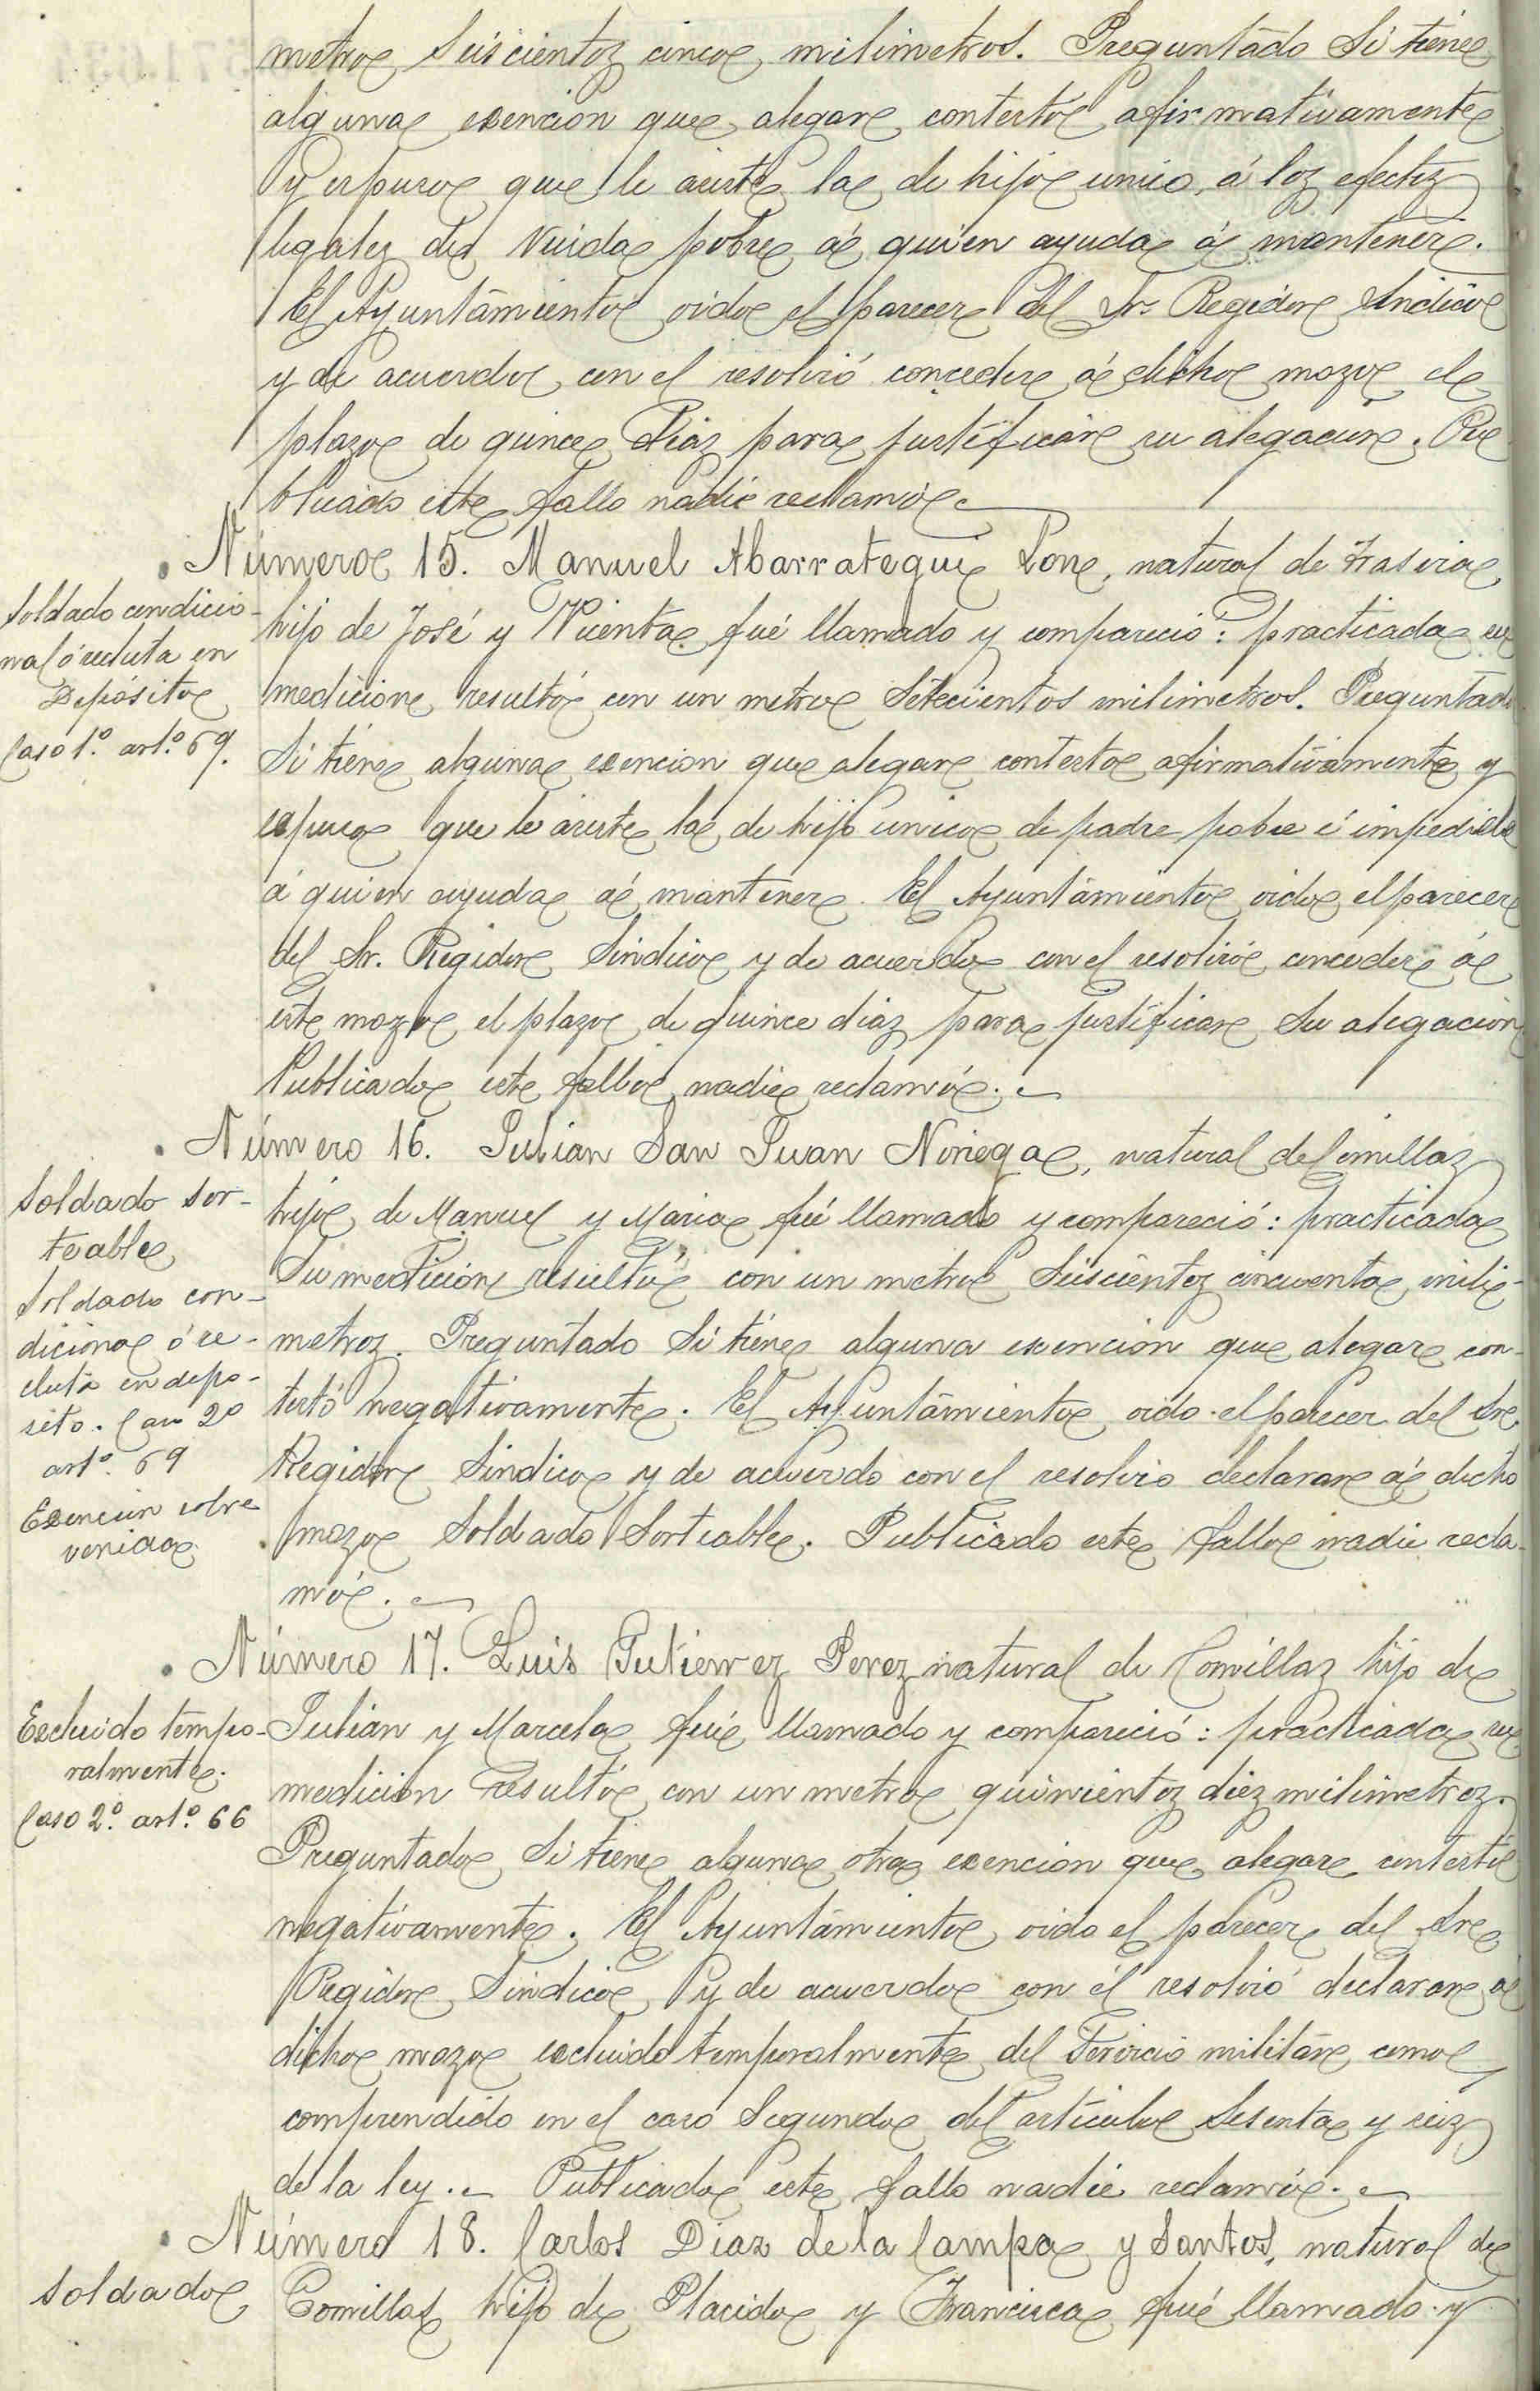 metro seiscientos cinco milimetros. Preguntado si tiene
alguna exencion que alegar contestó afirmativamente
y expuso que le asiste la de hijo unico, á los efectos
legales de viuda pobre á quien ayuda á mantener.
El Ayuntamiento oido el parecer del Sr. Regidor Sindico
y de acuerdo con el resolvió conceder á dicho mozo el
plazo de quince dias para justificar su alegacion. Pu-
blicado este fallo nadie reclamó.
Número 15. Manuel Abarrategui Pone, natural de Frasvia
hijo de José y Vicenta fué llamado y compareció: practicada su
Soldado condicio-
nal ó recluta en
Depósito
Caso 1.º art.º 69.
medicion resultó con un metro setecientos milimetros. Preguntado
si tiene alguna exencion que alegar contestó afirmativamente y
expuso que le asiste la de hijo unico de padre pobre é impedido
á quien ayuda á mantener. El Ayuntamiento oido el parecer
del Sr. Regidor Sindico y de acuerdo con el resolvió conceder á
este mozo el plazo de quince dias para justificar su alegacion
Publicado este fallo nadie reclamó.
Número 16. Julian San Juan Noriega, natural de Comillas
hijo de Manuel y Maria fué llamado y compareció: practicada
Soldado sor-
teable
Soldado con-
diciona ó re-
cluta en depo-
sito. Caso 2º
artº. 69
Exencion sobre
venida
su medicion resultó con un metro seiscientos cincuenta mili-
metros. Preguntado si tiene alguna exencion que alegar con-
testó negativamente. El Ayuntamiento oido el parecer del Sr.
Regidor Sindico y de acuerdo con el resolvio declarar á dicho
mozo Soldado Sorteable. Publicado este fallo nadie recla-
mó.
Número 17. Luis Gutierrez Perez natural de Comillas hijo de
Julian y Marcela fué llamado y compareció: practicada su
Escluido tempo-
ralmente.
Caso 2.º art.º 66
medicion resultó con un metro quinientos diez milimetros.
Preguntado si tiene alguna otra exencion que alegar contestó
negativamente. El Ayuntamiento oido el parecer del Sr.
Regidor Sindico y de acuerdo con él resolvió declarar á
dicho mozo escluido temporalmente del Servicio militar como
comprendido en el caso segundo del articulo sesenta y seis
de la ley. Publicado este fallo nadie reclamó.
Número 18. Carlos Diaz de la Campa y Santos, natural de
Soldado
Comillas hijo de Placido y Francisca fué llamado y